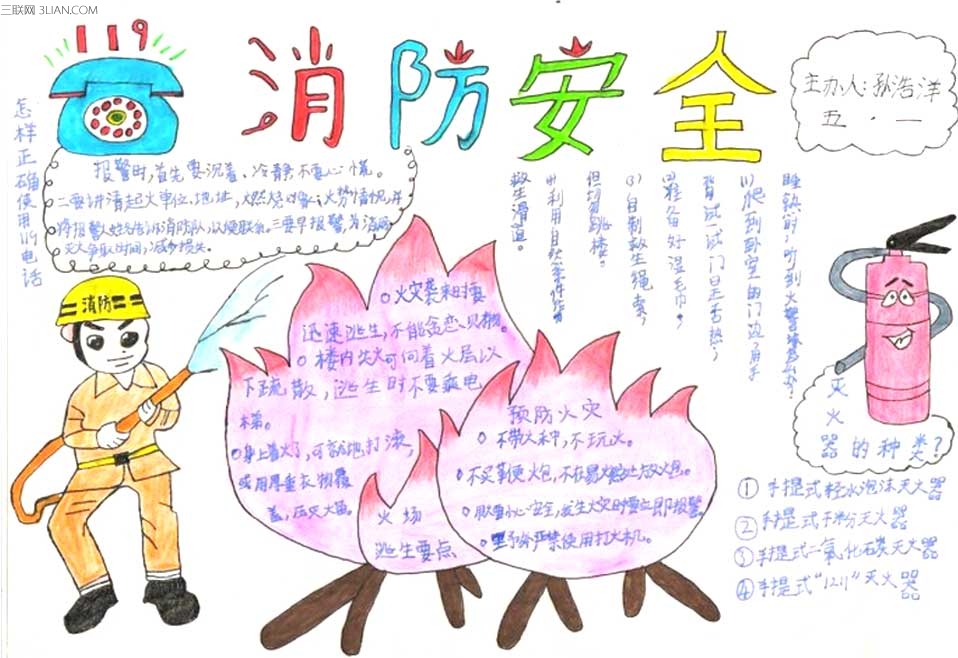 三联网 3LIAN.COM
119
消防安全
主办人:孙浩洋
五.一
怎样正确使用119电话
报警时,首先要沉着、冷静不要心慌。
二要讲清起火单位、地址,燃烧对象、火势情况,并
将报警人姓名告诉消防队,以便联系。三要早报警,为消防
灭火争取时间,减少损失。
睡熟时,听到火警
(1)爬到卧室的门边,用手
背试一试门是否热;
(2)准备好湿毛巾;
(3)自制救生绳索,
但切勿跳楼。
(4)利用自然条件作
救生滑道。
消防
火灾袭来时要
迅速逃生,不能贪恋财物。
楼内失火可向着火层以
下疏散,逃生时不要乘电
梯。
身上着火了,可就地打滚,
或用厚重衣物覆
盖,压灭火苗。
火场
逃生要点
预防火灾
不带火种,不玩火。
不买
火炮,不在易燃处放火炮。
发生火灾时要立即报警
野外严禁使用打火机。
灭火器的种类?
①手提式轻水泡沫灭火器
②手提式干粉灭火器
③手提式二氧化碳灭火器
④手提式“1211”灭火器